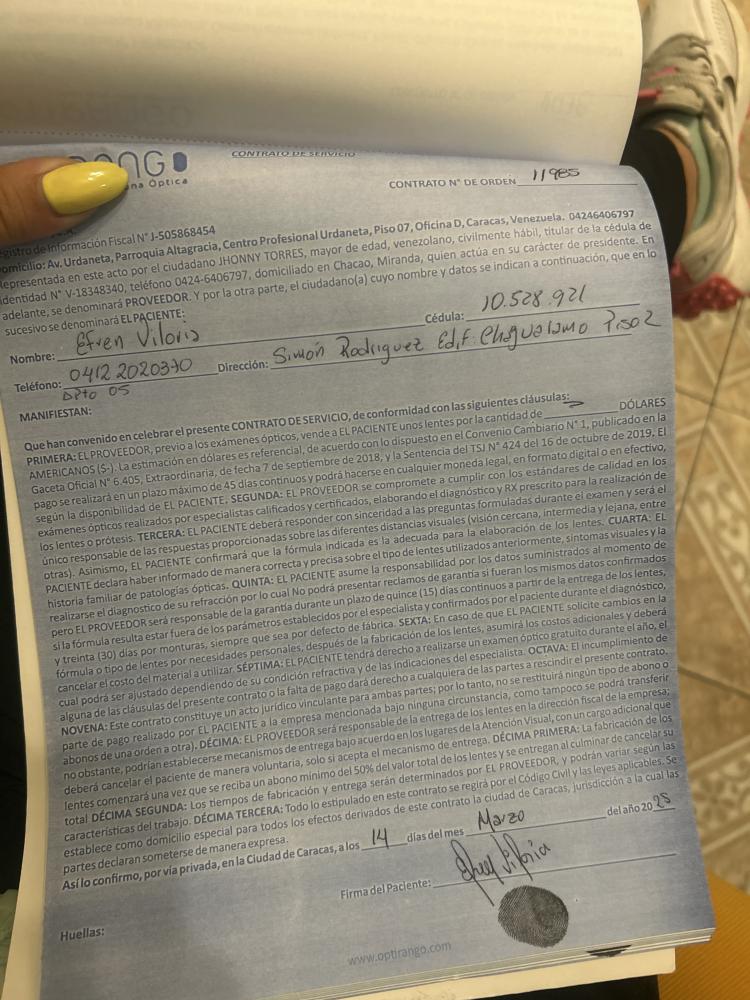 ANGO
na Óptica
CONTRATO DE SERVICIO
CONTRATO N° DE ORDEN 11985
egistro de Información Fiscal N° J-505868454
omicilio: Av. Urdaneta, Parroquia Altagracia, Centro Profesional Urdaneta, Piso 07, Oficina D, Caracas, Venezuela. 04246406797
epresentada en este acto por el ciudadano JHONNY TORRES, mayor de edad, venezolano, civilmente hábil, titular de la cédula de
identidad N° V-18348340, teléfono 0424-6406797, domiciliado en Chacao, Miranda, quien actúa en su carácter de presidente. En
adelante, se denominará PROVEEDOR. Y por la otra parte, el ciudadano(a) cuyo nombre y datos se indican a continuación, que en lo
sucesivo se denominará EL PACIENTE:
Nombre: Efren Viloria Cédula: 10.528.921
Teléfono: 0412 2020370 Dirección: Simón Rodriguez Edif. Chaguaramo Piso 2
Dpto 05
MANIFIESTAN:
Que han convenido en celebrar el presente CONTRATO DE SERVICIO, de conformidad con las siguientes cláusulas:
PRIMERA: EL PROVEEDOR, previo a los exámenes ópticos, vende a EL PACIENTE unos lentes por la cantidad de DÓLARES
AMERICANOS ($-). La estimación en dólares es referencial, de acuerdo con lo dispuesto en el Convenio Cambiario N° 1, publicado en la
Gaceta Oficial N° 6.405, Extraordinaria, de fecha 7 de septiembre de 2018, y la Sentencia del TSJ N° 424 del 16 de octubre de 2019. El
pago se realizará en un plazo máximo de 45 días continuos y podrá hacerse en cualquier moneda legal, en formato digital o en efectivo,
según la disponibilidad de EL PACIENTE. SEGUNDA: EL PROVEEDOR se compromete a cumplir con los estándares de calidad en los
exámenes ópticos realizados por especialistas calificados y certificados, elaborando el diagnóstico y RX prescrito para la realización de
los lentes o prótesis. TERCERA: EL PACIENTE deberá responder con sinceridad a las preguntas formuladas durante el examen y será el
único responsable de las respuestas proporcionadas sobre las diferentes distancias visuales (visión cercana, intermedia y lejana, entre
otras). Asimismo, EL PACIENTE confirmará que la fórmula indicada es la adecuada para la elaboración de los lentes. CUARTA: EL
PACIENTE declara haber informado de manera correcta y precisa sobre el tipo de lentes utilizados anteriormente, síntomas visuales y la
historia familiar de patologías ópticas. QUINTA: EL PACIENTE asume la responsabilidad por los datos suministrados al momento de
realizarse el diagnostico de su refracción por lo cual No podrá presentar reclamos de garantía si fueran los mismos datos confirmados
pero EL PROVEEDOR será responsable de la garantía durante un plazo de quince (15) días continuos a partir de la entrega de los lentes,
si la fórmula resulta estar fuera de los parámetros establecidos por el especialista y confirmados por el paciente durante el diagnóstico,
y treinta (30) días por monturas, siempre que sea por defecto de fábrica. SEXTA: En caso de que EL PACIENTE solicite cambios en la
fórmula o tipo de lentes por necesidades personales, después de la fabricación de los lentes, asumirá los costos adicionales y deberá
cancelar el costo del material a utilizar. SÉPTIMA: EL PACIENTE tendrá derecho a realizarse un examen óptico gratuito durante el año, el
cual podrá ser ajustado dependiendo de su condición refractiva y de las indicaciones del especialista. OCTAVA: El incumplimiento de
alguna de las cláusulas del presente contrato o la falta de pago dará derecho a cualquiera de las partes a rescindir el presente contrato.
NOVENA: Este contrato constituye un acto jurídico vinculante para ambas partes; por lo tanto, no se restituirá ningún tipo de abono o
parte de pago realizado por EL PACIENTE a la empresa mencionada bajo ninguna circunstancia, como tampoco se podrá transferir
abonos de una orden a otra). DÉCIMA: EL PROVEEDOR será responsable de la entrega de los lentes en la dirección fiscal de la empresa;
no obstante, podrían establecerse mecanismos de entrega bajo acuerdo en los lugares de la Atención Visual, con un cargo adicional que
deberá cancelar el paciente de manera voluntaria, solo si acepta el mecanismo de entrega. DÉCIMA PRIMERA: La fabricación de los
lentes comenzará una vez que se reciba un abono mínimo del 50% del valor total de los lentes y se entregan al culminar de cancelar su
total DÉCIMA SEGUNDA: Los tiempos de fabricación y entrega serán determinados por EL PROVEEDOR, y podrán variar según las
características del trabajo. DÉCIMA TERCERA: Todo lo estipulado en este contrato se regirá por el Código Civil y las leyes aplicables. Se
establece como domicilio especial para todos los efectos derivados de este contrato la ciudad de Caracas, jurisdicción a la cual las
partes declaran someterse de manera expresa.
Así lo confirmo, por vía privada, en la Ciudad de Caracas, a los 14 días del mes Marzo del año 2025
Firma del Paciente: Efren Viloria
Huellas:
www.optirango.com